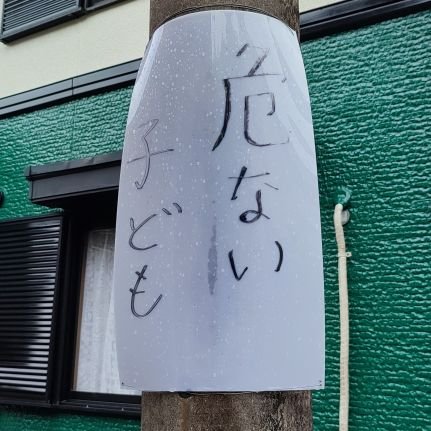 危ない
子ども